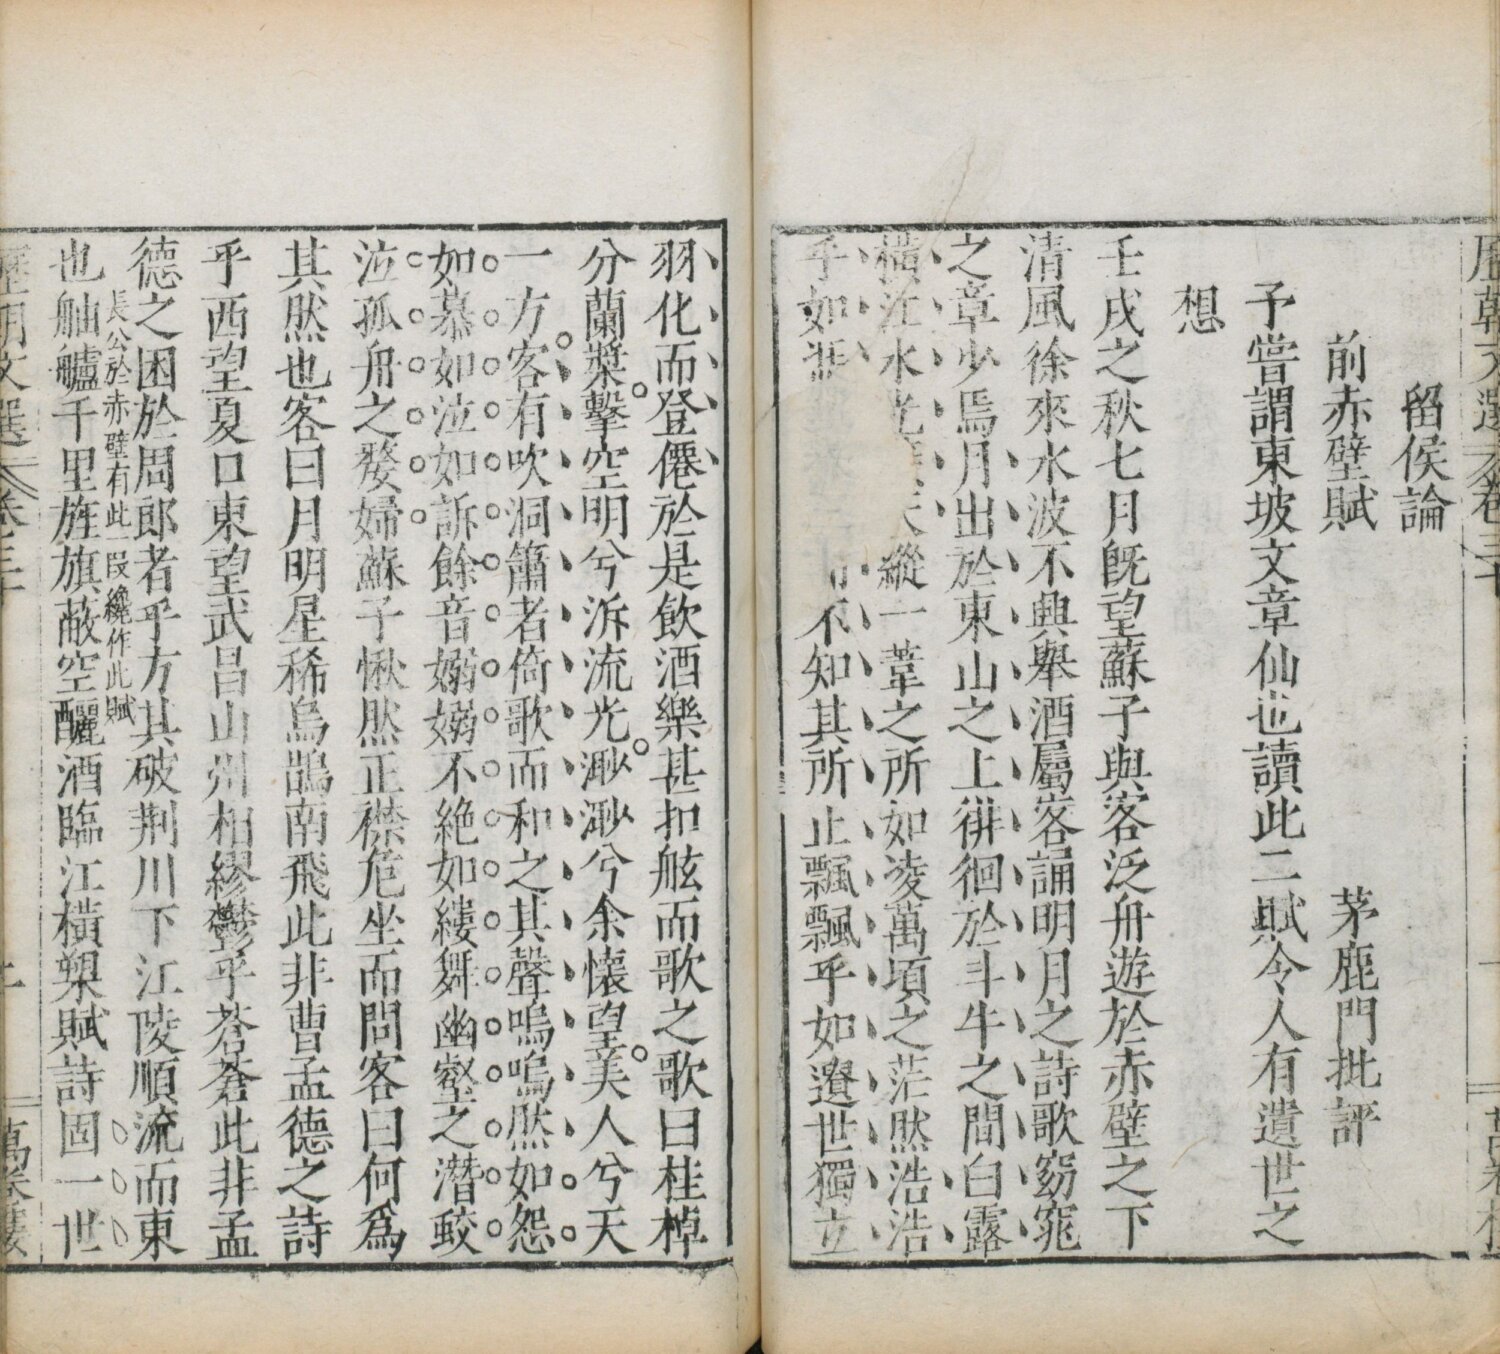 歷朝文選 卷三十
留侯論
前赤壁賦 茅鹿門批評
予嘗謂東坡文章仙也讀此二賦令人有遺世之
想
壬戌之秋七月旣望蘇子與客泛舟遊於赤壁之下
清風徐來水波不興舉酒屬客誦明月之詩歌窈窕
之章少焉月出於東山之上徘徊於斗牛之間白露
橫江水光 天縱一葦之所如凌萬頃之茫然浩浩
乎如 不知其所止飄飄乎如遺世獨立
羽化而登僊於是飲酒樂甚扣舷而歌之歌曰桂棹
兮蘭槳擊空明兮泝流光渺渺兮余懷望美人兮天
一方客有吹洞簫者倚歌而和之其聲嗚嗚然如怨
如慕如泣如訴餘音嫋嫋不絕如縷舞幽壑之潛蛟
泣孤舟之嫠婦蘇子愀然正襟危坐而問客曰何爲
其然也客曰月明星稀烏鵲南飛此非曹孟德之詩
乎西望夏口東望武昌山川相繆鬱乎蒼蒼此非孟
德之困於周郎者乎方其破荆川下江陵順流而東
長公於赤壁有此一段纔作此賦
也舳艫千里旌旗蔽空釃酒臨江橫槊賦詩固一世
歷朝文選 卷三十